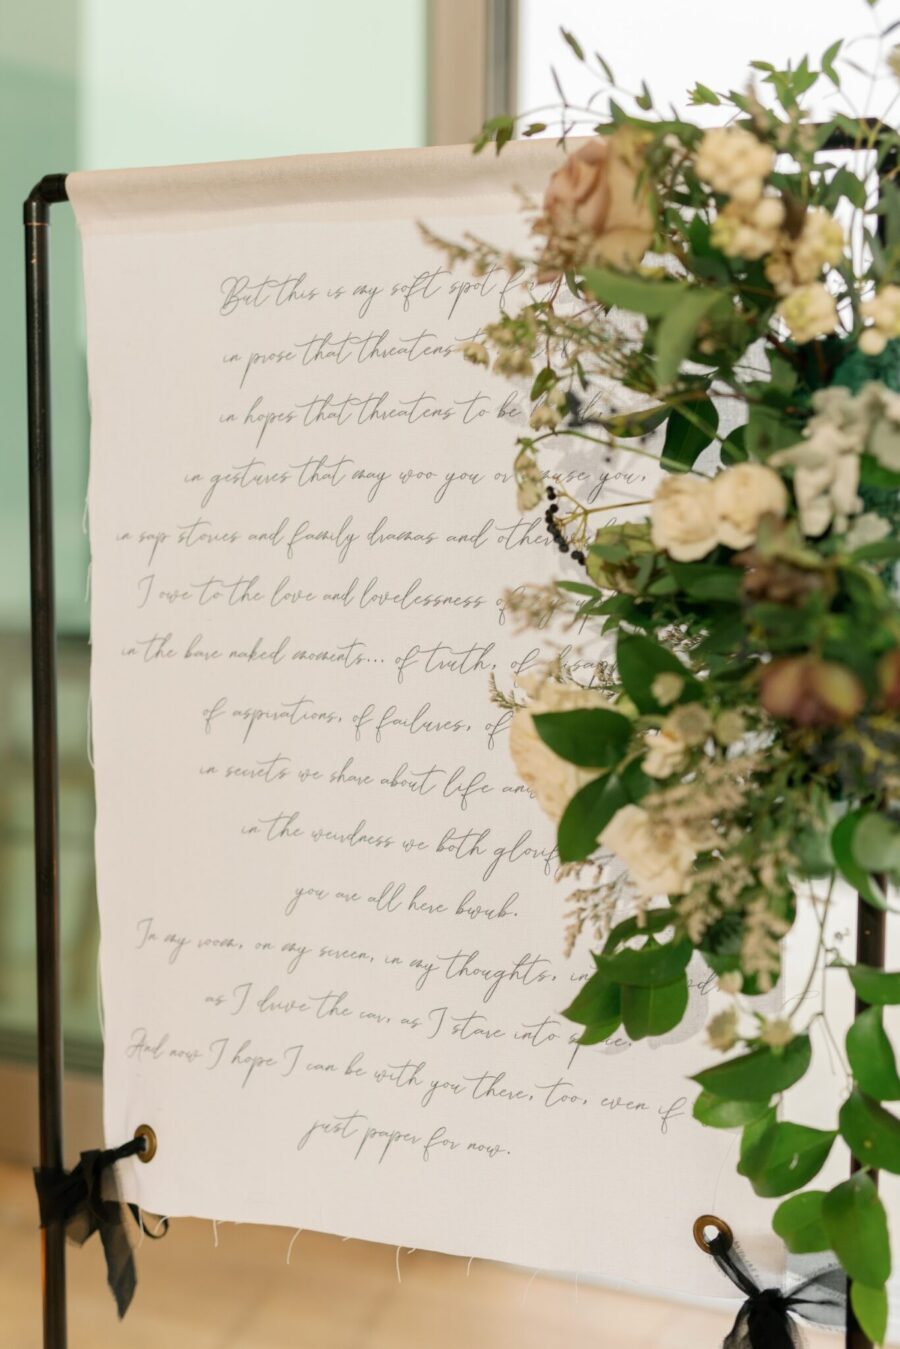 But this is my soft spot for
in prose that threatens to
in hopes that threatens to be
in gestures that may woo you or amuse you,
in sap stories and family dramas and otherwise
I owe to the love and lovelessness of my
in the bare naked moments... of truth, of
of aspirations, of failures, of
in secrets we share about life and
in the weirdness we both glorify
you are all here bwub.
In my room, on my screen, in my thoughts, in
as I drive the car, as I stare into space.
And now I hope I can be with you there, too, even if
just paper for now.